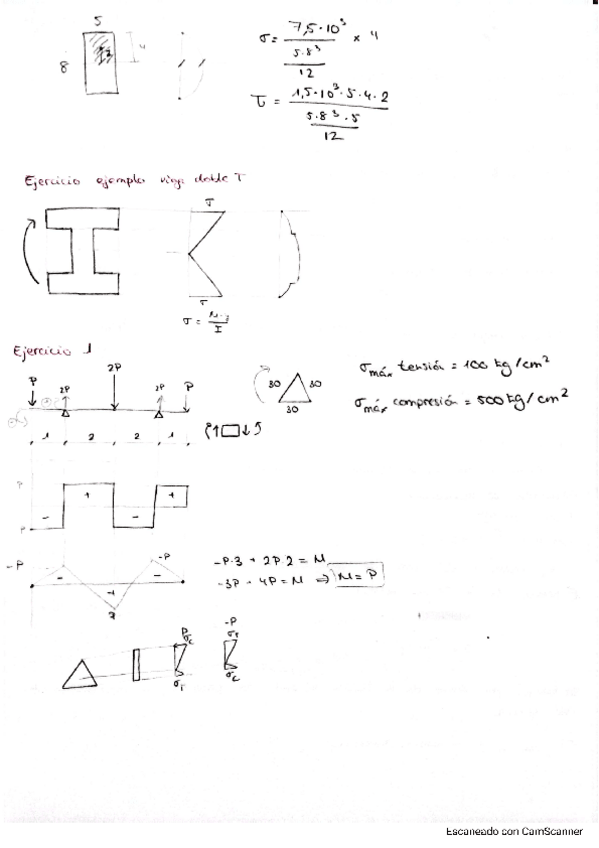 5
8
4
2
σ = 7,5·10³ / (5·8³ / 12) × 4
τ = 1,5·10³·5·4·2 / (5·8³·5 / 12)
Ejercicio ejemplo viga doble T
σ
σ
σ = M·y / I
Ejercicio 1
P 2P 2P 2P P
1 2 2 1
30 30
30
σ máx tensión = 100 kg/cm²
σ máx compresión = 500 kg/cm²
P
- + - +
P
-P -P
- + -
-P·3 + 2P·2 = M
-3P + 4P = M ⇒ M = P
P -P
σc σT
σT σc
Escaneado con CamScanner